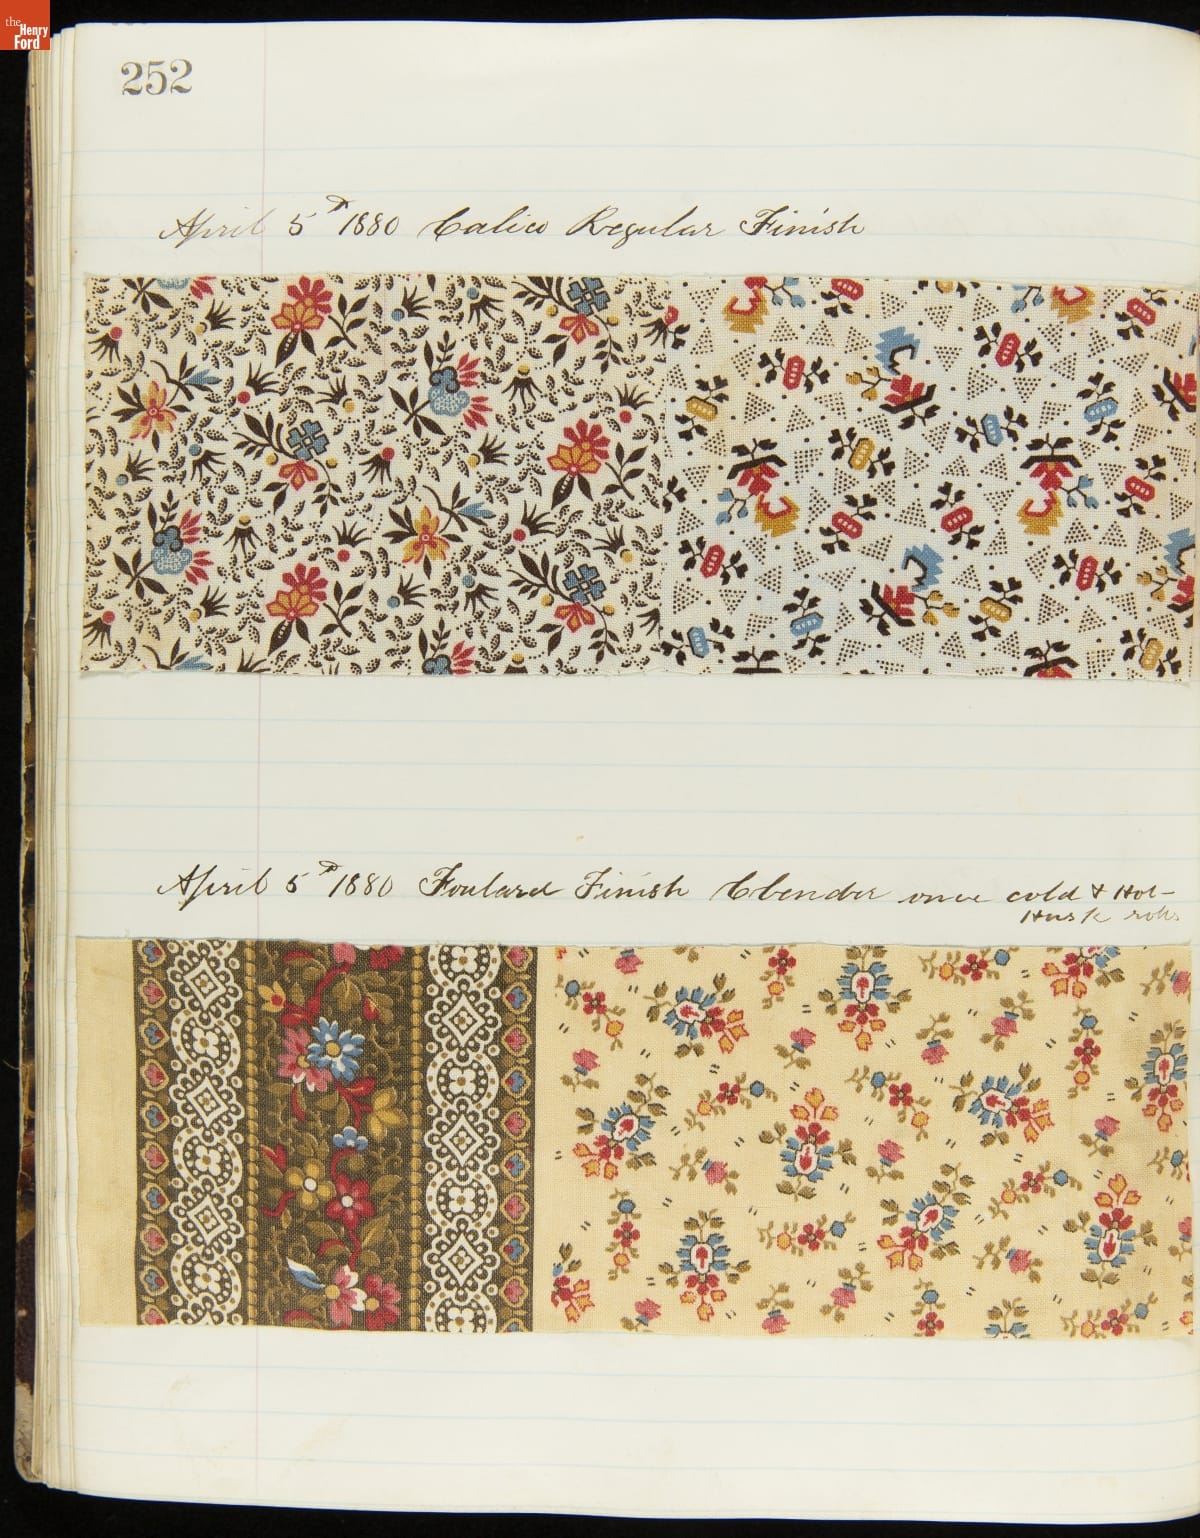 the
Henry
Ford
252
April 5th 1880 Calico Regular Finish
April 5th 1880 Foulard Finish once cold & Hot
Husk rolls